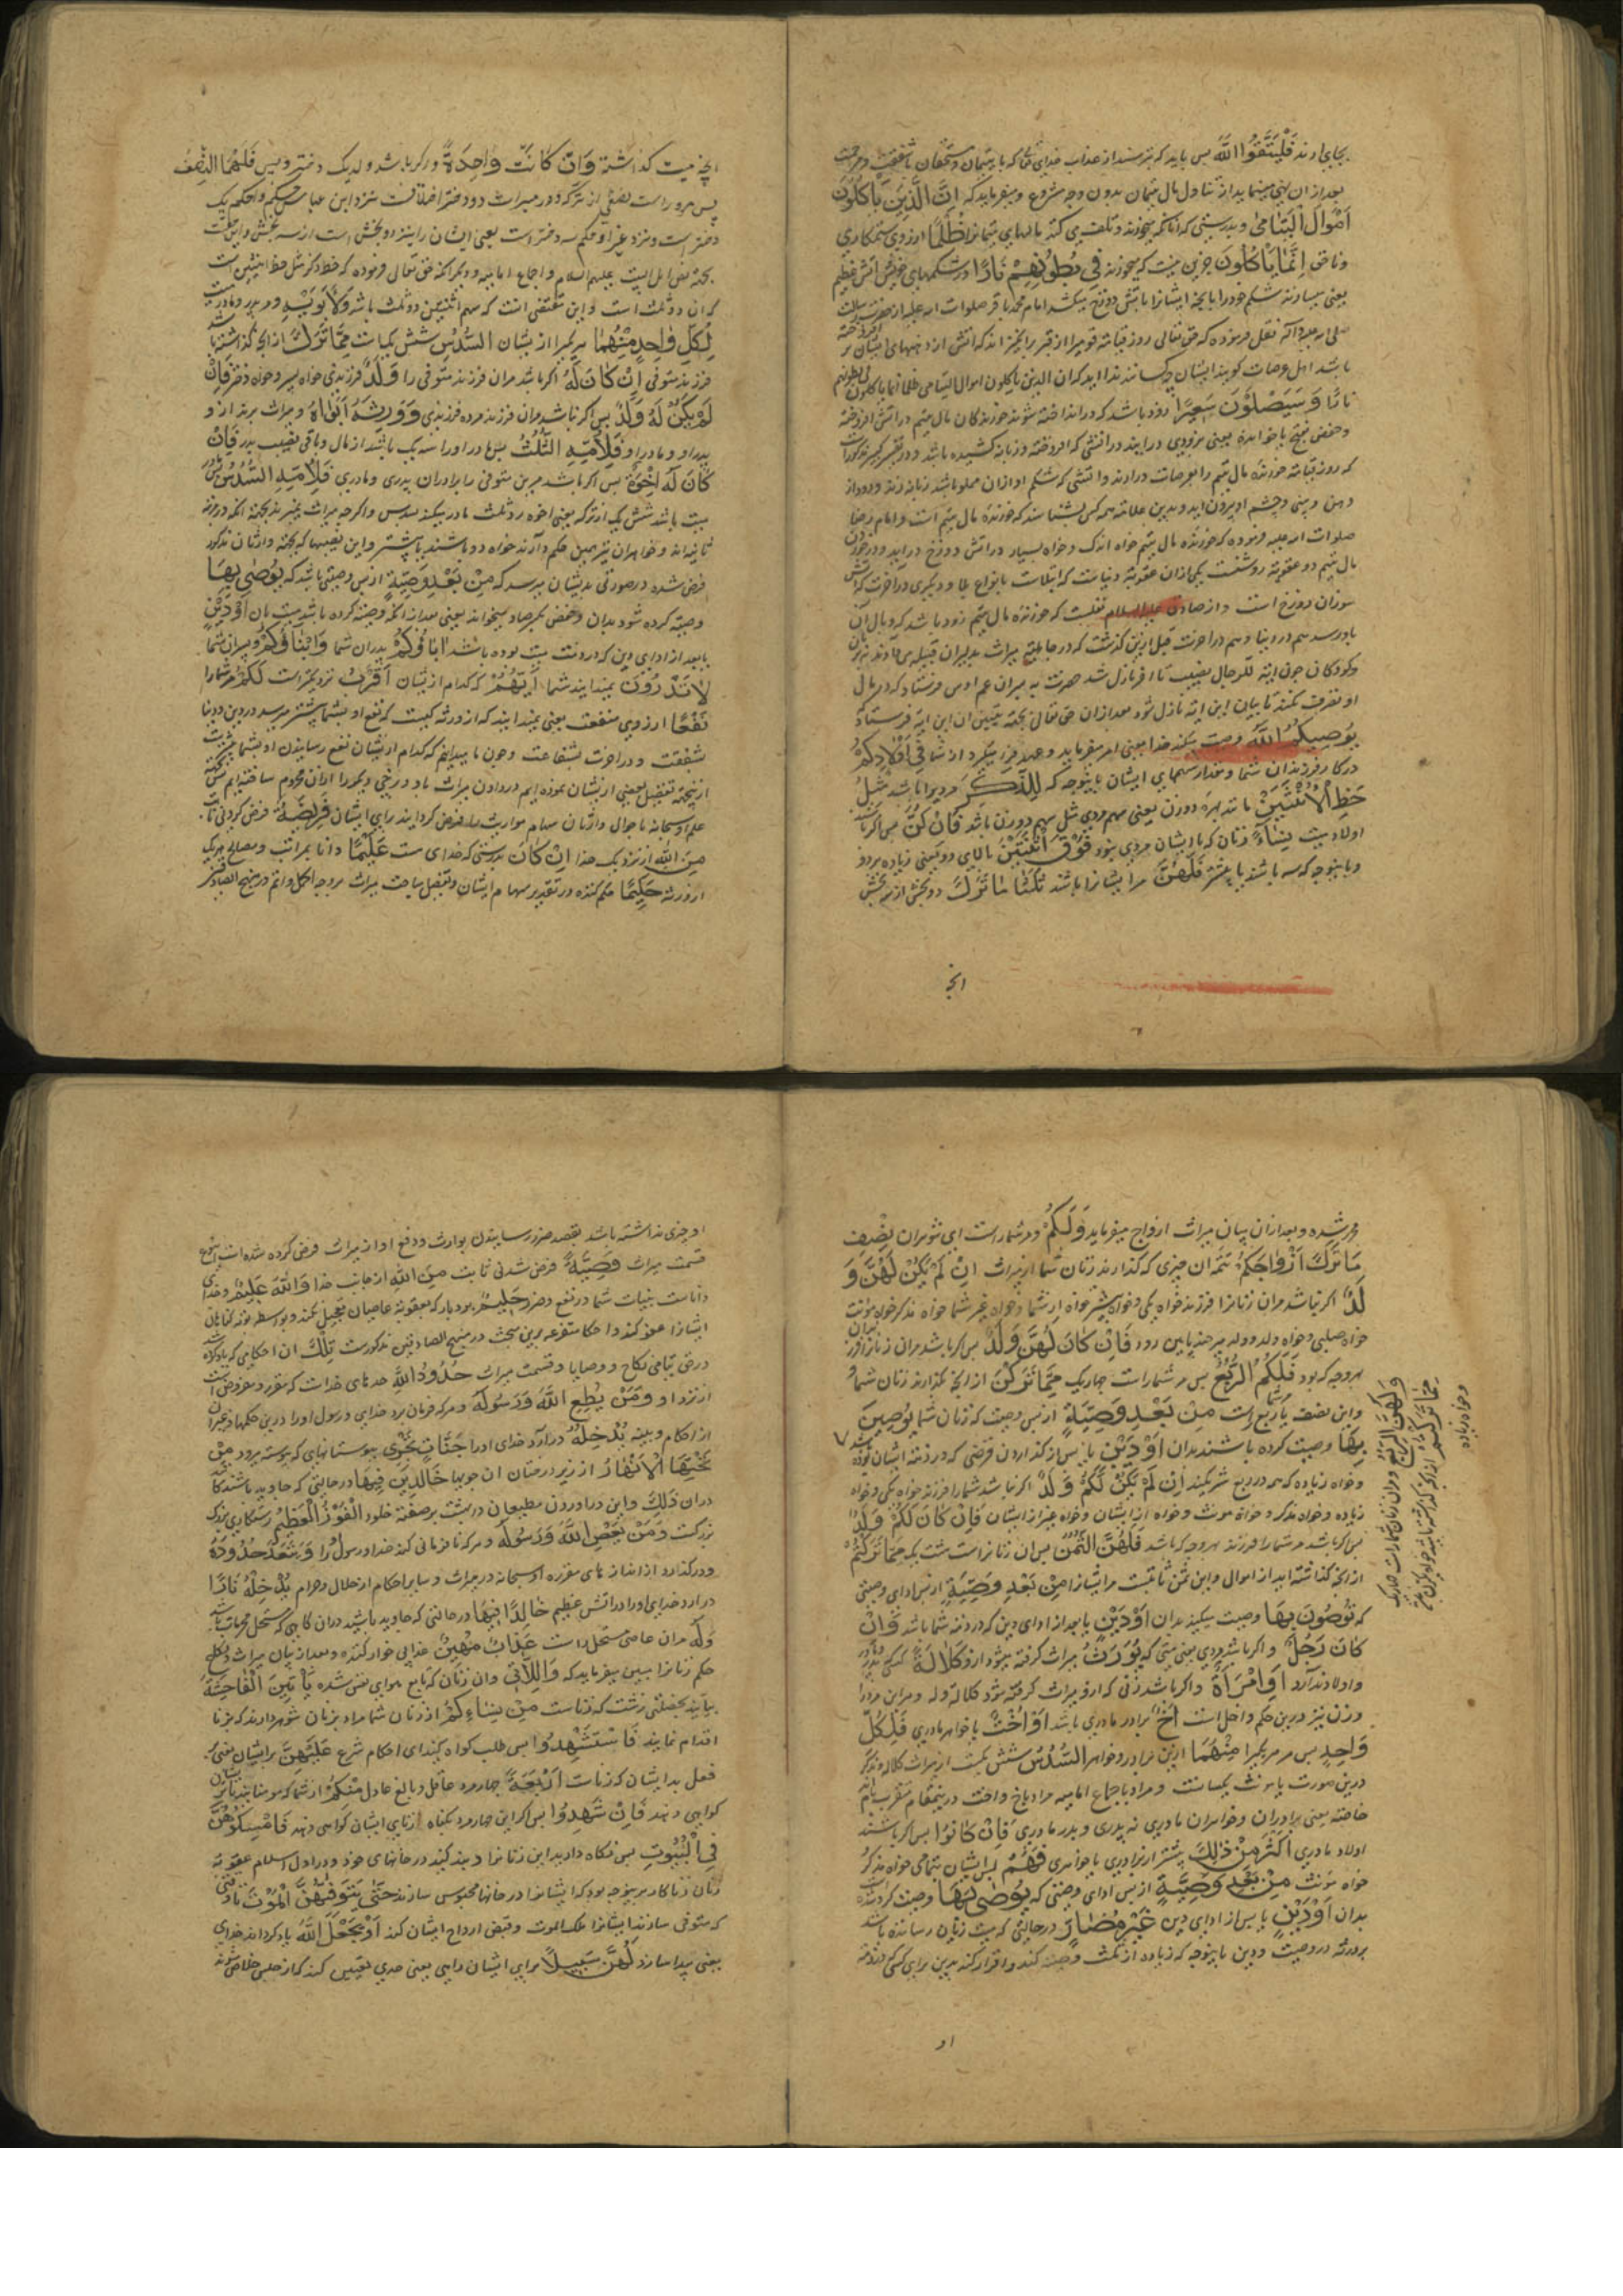 بجای ارند فَلْيَتَّقُوا اللهَ پس باید که بترسند از عذاب خدای تعالی که با یتیمان و مستحقان با شفقت و مرحمت
بعد از ان نهی مینماید از تناول مال یتیمان بدون وجه مشروع و میفرماید که اِنَّ الَّذِينَ يَأْكُلُونَ
اَمْوَالَ الْيَتَامٰى و بدرستی که آنانکه میخورند و تلف می کنند مالهای یتیمانرا ظُلْمًا از روی ستمکاری
و ناحق اِنَّمَا يَأْكُلُونَ جز این نیست که میخورند فِي بُطُونِهِمْ نَارًا در شکمهای خویش آتش عظیم
یعنی میسازند شکم خود را بانچه ایشانرا باتش دوزخ میکشد امام محمد باقر صلوات الله علیه از حضرت رسالت
صلی الله علیه و آله نقل فرموده که حق تعالی روز قیامة قومیرا از قبر برانگیزاند که اتش از دهنهای ایشان بر افروخته
باشد اهل عرصات گویند ایشان چه کسانند ندا اید که ان الذین یاکلون اموال الیتامی ظلما انما یاکلون فی بطونهم
نارا وَسَيَصْلَوْنَ سَعِيرًا و زود باشد که در انداخته شوند خورندکان مال یتیم در اتش افروخته
و حفص بفتح یا خوانده یعنی بزودی در ایند در اتشی که افروخته و زبانه کشیده باشد و در تفسیر کبیر مذکورست
که روز قیامة خورندهٔ مال یتیم را بعرصات درارند و اتشی که شکم او ازان مملو باشد زبانه زند و دود از
دهن و بینی و چشم او بیرون اید و بدین علامة همه کس بشناسند که خورندهٔ مال یتیم است و امام رضا
صلوات الله علیه فرموده که خورنده مال یتیم خواه اندک و خواه بسیار در اتش دوزخ در اید و در خوردن
مال یتیم دو عقوبة روشنست یکی ازان عقوبة دنیاست که ابتلاست بانواع بلا و دیگری در اخرت که اتش
سوزان دوزخ است و از صادق علیه السلام نقلست که خورندهٔ مال یتیم زود باشد که وبال آن
باو رسد هم در دنیا و هم در اخرت قبل ازین گذشت که در جاهلیة میراث بدلیران قبیله می دادند نه بزنان
و کودکان چون ایه للرجال نصیب تا اخر نازل شد حضرت به پسران عم اوس فرستاد که در مال
او تصرف نکنند تا بیان این ایه نازل شود بعد ازان حق تعالی بجهة تبیین ان این ایه فرستاد که
يُوصِيكُمُ اللهُ وصیت میکند خدا یعنی امر میفرماید و عهد فرا میگیرد از شما فِي اَوْلَادِكُمْ
در کار فرزندان شما و مقدار سهمهای ایشان باینوجه که لِلذَّكَرِ مر دیرا باشد مِثْلُ
حَظِّ الْاُنْثَيَيْنِ مانند بهرهٔ دو زن یعنی سهم مردی مثل سهم دو زن باشد فَاِنْ كُنَّ پس اکر باشند
اولاد میت نِسَاءً زنان که با ایشان مردی نبود فَوْقَ اثْنَتَيْنِ بالای دو یعنی زیاده بر دو
و باینوجه که سه باشند یا بیشتر فَلَهُنَّ مر ایشانرا باشد ثُلُثَا مَا تَرَكَ دو بخش از سه بخش
انچه
انچه میت کذاشته وَاِنْ كَانَتْ وَاحِدَةً و اکر باشد ولد یک دختر و بس فَلَهَا النِّصْفُ
پس مر او راست نصفی از ترکه و در میراث دو دختر اختلافست نزد ابن عباس حکم او حکم یک
دختر است و نزد غیر او حکم سه دختر است یعنی ایشان را نیز دو بخش است از سه بخش و این حکمست
بجهة نص اهل البیت علیهم السلام و اجماع امامیه و دیگر انکه حق تعالی فرموده که حظ ذکر مثل حظ انثیین است
که ان دو ثلث است و این مقتضی انست که سهم انثیین دو ثلث باشد وَلِاَبَوَيْهِ و مر پدر و مادر میت
لِكُلِّ وَاحِدٍ مِنْهُمَا هر یکیرا از ایشان السُّدُسُ شش یکیاست مِمَّا تَرَكَ از انچه کذاشته باشد
فرزند متوفی اِنْ كَانَ لَهُ اکر باشد مران فرزند متوفی را وَلَدٌ فرزندی خواه پسر و خواه دختر فَاِنْ
لَمْ يَكُنْ لَهُ وَلَدٌ پس اکر نباشد مران فرزند مرده فرزندی وَوَرِثَهُ اَبَوَاهُ و میراث برند از و
پدر او و مادر او فَلِاُمِّهِ الثُّلُثُ پس مادر او را سه یک باشد از مال و باقی نصیب پدر فَاِنْ
كَانَ لَهُ اِخْوَةٌ پس اکر باشد مرین متوفی را برادران پدری و مادری فَلِاُمِّهِ السُّدُسُ پس مادر
میت باشد شش یک از ترکه یعنی اخوه رد ثلث مادر میکنند بسدس و اکرچه میراث نمیبرند بجهة انکه در مرتبه
ثانیه‌اند و خواهران نیز همین حکم دارند خواه دو باشند یا بیشتر و این نصیبها که بجهة وارثان مذکور
فرض شده در صورتی بدیشان میرسد که مِنْ بَعْدِ وَصِيَّةٍ از پس وصیتی باشد که يُوصٰى بِهَا
وصیة کرده شود بدان و حفص بکسر صاد میخواند یعنی بعد از انکه وصیة کرده باشد میت بان اَوْ دَيْنٍ
یا بعد از ادای دین که در ذمت میت بوده باشد اٰبَاؤُكُمْ پدران شما وَاَبْنَاؤُكُمْ و پسران شما
لَا تَدْرُونَ نمیدانید شما اَيُّهُمْ که کدام از ایشان اَقْرَبُ نزدیکتر است لَكُمْ مر شما را
نَفْعًا از روی منفعت یعنی نمیدانید که از ورثه کیست که نفع او بشما بیشتر میرسد در دین و دنیا
بشفقت و در اخرت بشفاعت و چون ما میدانیم که کدام از ایشان نفع رسانیدن او بشما بیشترست
ازینجهة تفضیل بعضی از ایشان نموده ایم در دادن میراث باو و برخی دیگر را ازان محروم ساخته‌ایم
علم او سبحانه باحوال وارثان سهام مواریث را فرض کردانید برای ایشان فَرِيضَةً فرض کردنی ثابت
مِنَ اللهِ از نزدیک خدا اِنَّ اللهَ كَانَ بدرستی که خدای هست عَلِيمًا دانا بمراتب و مصالح هریک
از ورثه حَكِيمًا حکم کننده در تقدیر سهام ایشان و تفصیل مباحث میراث بر وجه اکمل و اتم در منهج الصادقین
محرر شده و بعد ازان بیان میراث ازواج میفرماید وَلَكُمْ و مر شما راست ای شوهران نِصْفُ
مَا تَرَكَ اَزْوَاجُكُمْ نیمه ان چیزی که کذارند زنان شما از میراث اِنْ لَمْ يَكُنْ لَهُنَّ وَ
لَدٌ اکر نباشد مران زنانرا فرزند خواه یکی و خواه بیشتر خواه از شما و خواه از غیر شما خواه مذکر خواه مؤنث
خواه صلبی و خواه ولد ولد هر چند پایین رود فَاِنْ كَانَ لَهُنَّ وَلَدٌ پس اکر باشد مران زنانرا فرزند
بهر وجه که بود فَلَكُمُ الرُّبُعُ پس مر شما راست چهار یک مِمَّا تَرَكْنَ از انچه بکذارند زنان شما
و این نصف یا ربع شماست مِنْ بَعْدِ وَصِيَّةٍ از پس وصیت که زنان شما يُوصِينَ
بِهَا وصیت کرده باشند بدان اَوْ دَيْنٍ یا پس از کذاردن قرضی که در ذمة ایشان بوده باشد
وَلَهُنَّ الرُّبُعُ و مران زنان شما راست چهار یک
مِمَّا تَرَكْتُمْ از انچه کذاشته باشید خواه یکزن باشد
و خواه زیاده
و خواه زیاده که همه در ربع شریکند اِنْ لَمْ يَكُنْ لَكُمْ وَلَدٌ اکر نباشد شما را فرزند خواه یکی و خواه
زیاده و خواه مذکر و خواه مونث و خواه از ایشان و خواه غیر از ایشان فَاِنْ كَانَ لَكُمْ وَلَدٌ
پس اکر باشد مر شما را فرزند بهر وجه که باشد فَلَهُنَّ الثُّمُنُ پس ان زنانراست هشت یک مِمَّا تَرَكْتُمْ
از انچه کذاشته اید از اموال و این ثمن ثابتست مر ایشانرا مِنْ بَعْدِ وَصِيَّةٍ از پس ادای وصیتی
که تُوصُونَ بِهَا وصیت میکنید بدان اَوْ دَيْنٍ یا بعد از ادای دین که در ذمه شما باشد وَاِنْ
كَانَ رَجُلٌ و اکر باشد مردی یعنی میتی که يُورَثُ میراث کرفته میشود ازو كَلَالَةً که پدر و مادر
و اولاد ندارد اَوِ امْرَأَةٌ و اکر باشد زنی که ازو میراث کرفته شود کلاله وَلَهُ و مر این مرد را
و زن نیز درین حکم داخل است اَخٌ برادر مادری باشد اَوْ اُخْتٌ یا خواهر مادری فَلِكُلِّ
وَاحِدٍ پس مر هر یکیرا مِنْهُمَا ازین برادر و خواهر السُّدُسُ شش یکست از میراث کلاله و مذکر
درین صورت با مونث یکسانست و مراد باجماع امامیه مراد باخ و اخت درینمقام متقرب بام اند
خاصه یعنی برادران و خواهران مادری نه پدری و پدر مادری فَاِنْ كَانُوا پس اکر باشند
اولاد مادری اَكْثَرَ مِنْ ذٰلِكَ بیشتر از برادری یا خواهری فَهُمْ پس ایشان بتمامی خواه مذکر
خواه مؤنث مِنْ بَعْدِ وَصِيَّةٍ از پس ادای وصیتی که يُوصٰى بِهَا وصیت کرده شده
بدان اَوْ دَيْنٍ یا پس از ادای دین غَيْرَ مُضَارٍّ در حالتی که میت زیان رساننده نباشد
بورثه در وصیت و دین باینوجه که زیاده از ثلث وصیة کند و اقرار کند بدین برای کسی که در ذمة
او
او چیزی نداشته باشد بقصد ضرر رسانیدن بوارث و دفع او از میراث فرض کرده شده است اینوع
قسمت میراث وَصِيَّةً فرض شدنی ثابت مِنَ اللهِ از جانب خدا وَاللهُ عَلِيمٌ و خدای
داناست بنیات شما در نفع و ضرر حَلِيمٌ بردبار که بعقوبة عاصیان تعجیل نکند و بواسطه توبه کناهان
ایشانرا عفو کند و احکام متفرعه برین مبحث در منهج الصادقین مذکورست تِلْكَ ان احکامی که یاد کرده شد
در حق یتامی نکاح و وصایا و قسمت میراث حُدُودُ اللهِ حدهای خداست که مقرر و مفروض است
از نزد او وَمَنْ يُطِعِ اللهَ وَرَسُولَهُ و هر که فرمان برد خدایی و رسول او را درین حکمها و غیر ان
از احکام و بینه يُدْخِلْهُ در آرد خدای او را جَنَّاتٍ تَجْرِي ببوستانهای که پیوسته میرود مِنْ
تَحْتِهَا الْاَنْهَارُ از زیر درختان ان جویها خَالِدِينَ فِيهَا در حالتی که جاوید باشندکان
دران ذٰلِكَ و این دراوردن مطیعان در بهشت بر صفة خلود الْفَوْزُ الْعَظِيمُ رستکاری بزرک
بزرکست وَمَنْ يَعْصِ اللهَ وَرَسُولَهُ و هر که نافرمانی کند خدا و رسول او را وَيَتَعَدَّ حُدُودَهُ
و در کذارد از اندازهای مقرره او سبحانه در میراث و سایر احکام از حلال و حرام يُدْخِلْهُ نَارًا
در ارد خدای او را در اتش عظیم خَالِدًا فِيهَا در حالتی که جاوید باشید دران کاهی که مستحل محرمات باشد
وَلَهُ مران عاصی مستحل راست عَذَابٌ مُهِينٌ عذابی خوار کننده و بعد از بیان میراث و نکاح
حکم زنانرا مبین میفرماید که وَاللَّاتِي وان زنان که تابع هوای نفس شده يَأْتِينَ الْفَاحِشَةَ
بیایند بخصلتی زشت که زناست مِنْ نِسَائِكُمْ از زنان شما مراد زنان شوهردارند که بزنا
اقدام نمایند فَاسْتَشْهِدُوا پس طلب کواه کنید ای احکام شرع عَلَيْهِنَّ بر ایشان یعنی بر
فعل بد ایشان که زناست اَرْبَعَةً چهار مرد عاقل و بالغ عادل مِنْكُمْ از شما که مومنانید تا بر ایشان
کواهی دهند فَاِنْ شَهِدُوا پس اکر این چهار مرد بیکباه از زنای ایشان کواهی دهند فَاَمْسِكُوهُنَّ
فِي الْبُيُوتِ پس نکاه دارید این زنانرا و بند کنید در خانهای خود و در اول اسلام عقوبة
زنان زناکار برینوجه بود که ایشانرا در خانها محبوس سازند حَتّٰى يَتَوَفّٰهُنَّ الْمَوْتُ تا وقتی
که متوفی سازند ایشانرا ملک الموت و قبض ارواح ایشان کند اَوْ يَجْعَلَ اللهُ یا کرداند خدای
یعنی پیدا سازد لَهُنَّ سَبِيلًا برای ایشان راهی یعنی حدی تعیین کند که از حبس خلاص شوند